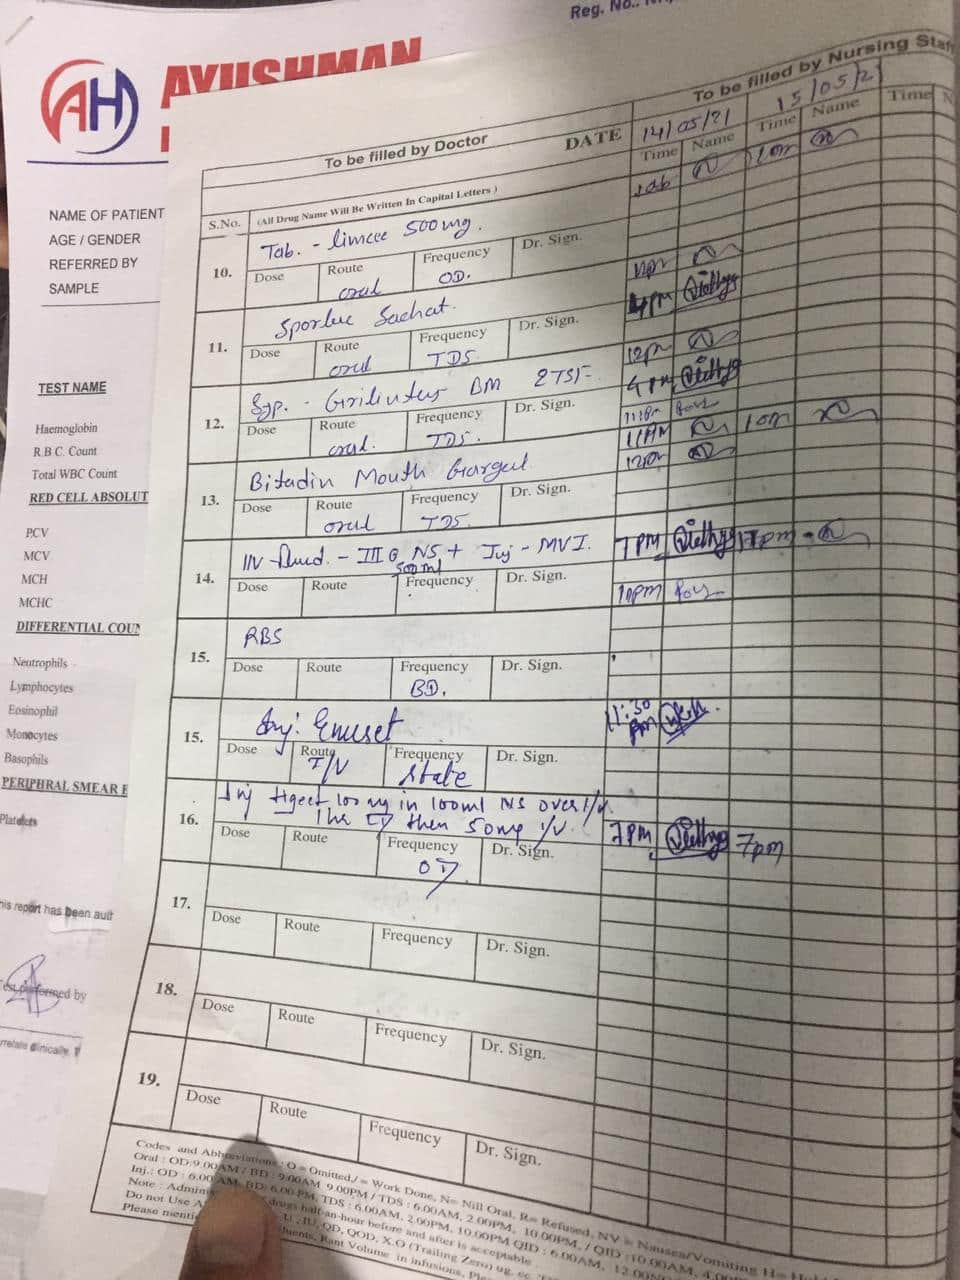 Reg. No.:
AH AYUSHMAN
NAME OF PATIENT
AGE / GENDER
REFERRED BY
SAMPLE
TEST NAME
Haemoglobin
R.B.C. Count
Total WBC Count
RED CELL ABSOLUT
PCV
MCV
MCH
MCHC
DIFFERENTIAL COUN
Neutrophils
Lymphocytes
Eosinophil
Monocytes
Basophils
PERIPHRAL SMEAR E
Platelets
his report has been auth
Test performed by
rrelate clinically.
To be filled by Doctor
To be filled by Nursing Staf
DATE 14/05/21 15/05/2
Time Name Time Name Time N
S.No. (All Drug Name Will Be Written In Capital Letters )
10. Tab. - limcee 500mg.
Dose Route Frequency Dr. Sign.
oral OD.
11. Sporlac Sachat.
Dose Route Frequency Dr. Sign.
oral TDS.
4PM
12. Syp. - Grilinctus BM 2TSF.
Dose Route Frequency Dr. Sign.
oral. TDS.
12pm
4PM
13. Bitadin Mouth Gargal
Dose Route Frequency Dr. Sign.
oral TDS.
11AM
12pm
14. IIV fluid. - III G NS + Inj - MVI.
500ml
Dose Route Frequency Dr. Sign.
7PM 7pm
10pm
15. RBS
Dose Route Frequency Dr. Sign.
BD.
15. Inj. Emeset
Dose Route Frequency Dr. Sign.
I/V State
11:30 pm
16. Inj tigect 100mg in 100ml NS over I/V.
1hr then 50mg I/V.
Dose Route Frequency Dr. Sign.
OD
7PM 7pm
17.
Dose Route Frequency Dr. Sign.
18.
Dose Route Frequency Dr. Sign.
19.
Dose Route Frequency Dr. Sign.
Codes and Abbreviations : O = Omitted,/ = Work Done, N= Nill Oral, R= Refused, NV = Nausea/Vomiting H=
Oral : OD:9.00AM / BD : 9.00AM 9.00PM / TDS : 6.00AM, 2.00PM, 10.00PM, / QID :10.00AM, 4.0
Inj.: OD : 6.00AM, BD: 6.00 PM, TDS : 6.00AM, 2.00PM, 10.00PM QID : 6.00AM, 12.00
Note : Admin drugs half-an-hour before and after is acceptable
Do not Use U , IU, QD, QOD, X.O (Trailing Zero) ug, cc,
Please menti Volume in infusions,